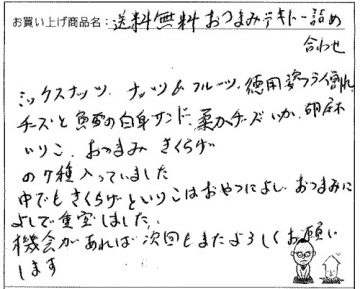 お買い上げ商品名: 送料無料おつまみテキトー詰め
合わせ
ミックスナッツ、ナッツ&フルーツ、徳用姿フライ割れ
チーズと魚の白身サンド、柔かチーズいか、胡麻
いりこ、おつまみきくらげ
の7種入っていました
中でもきくらげといりこはおやつによし、おつまみに
よしで重宝しました。
機会があれば次回もまたよろしくお願い
します